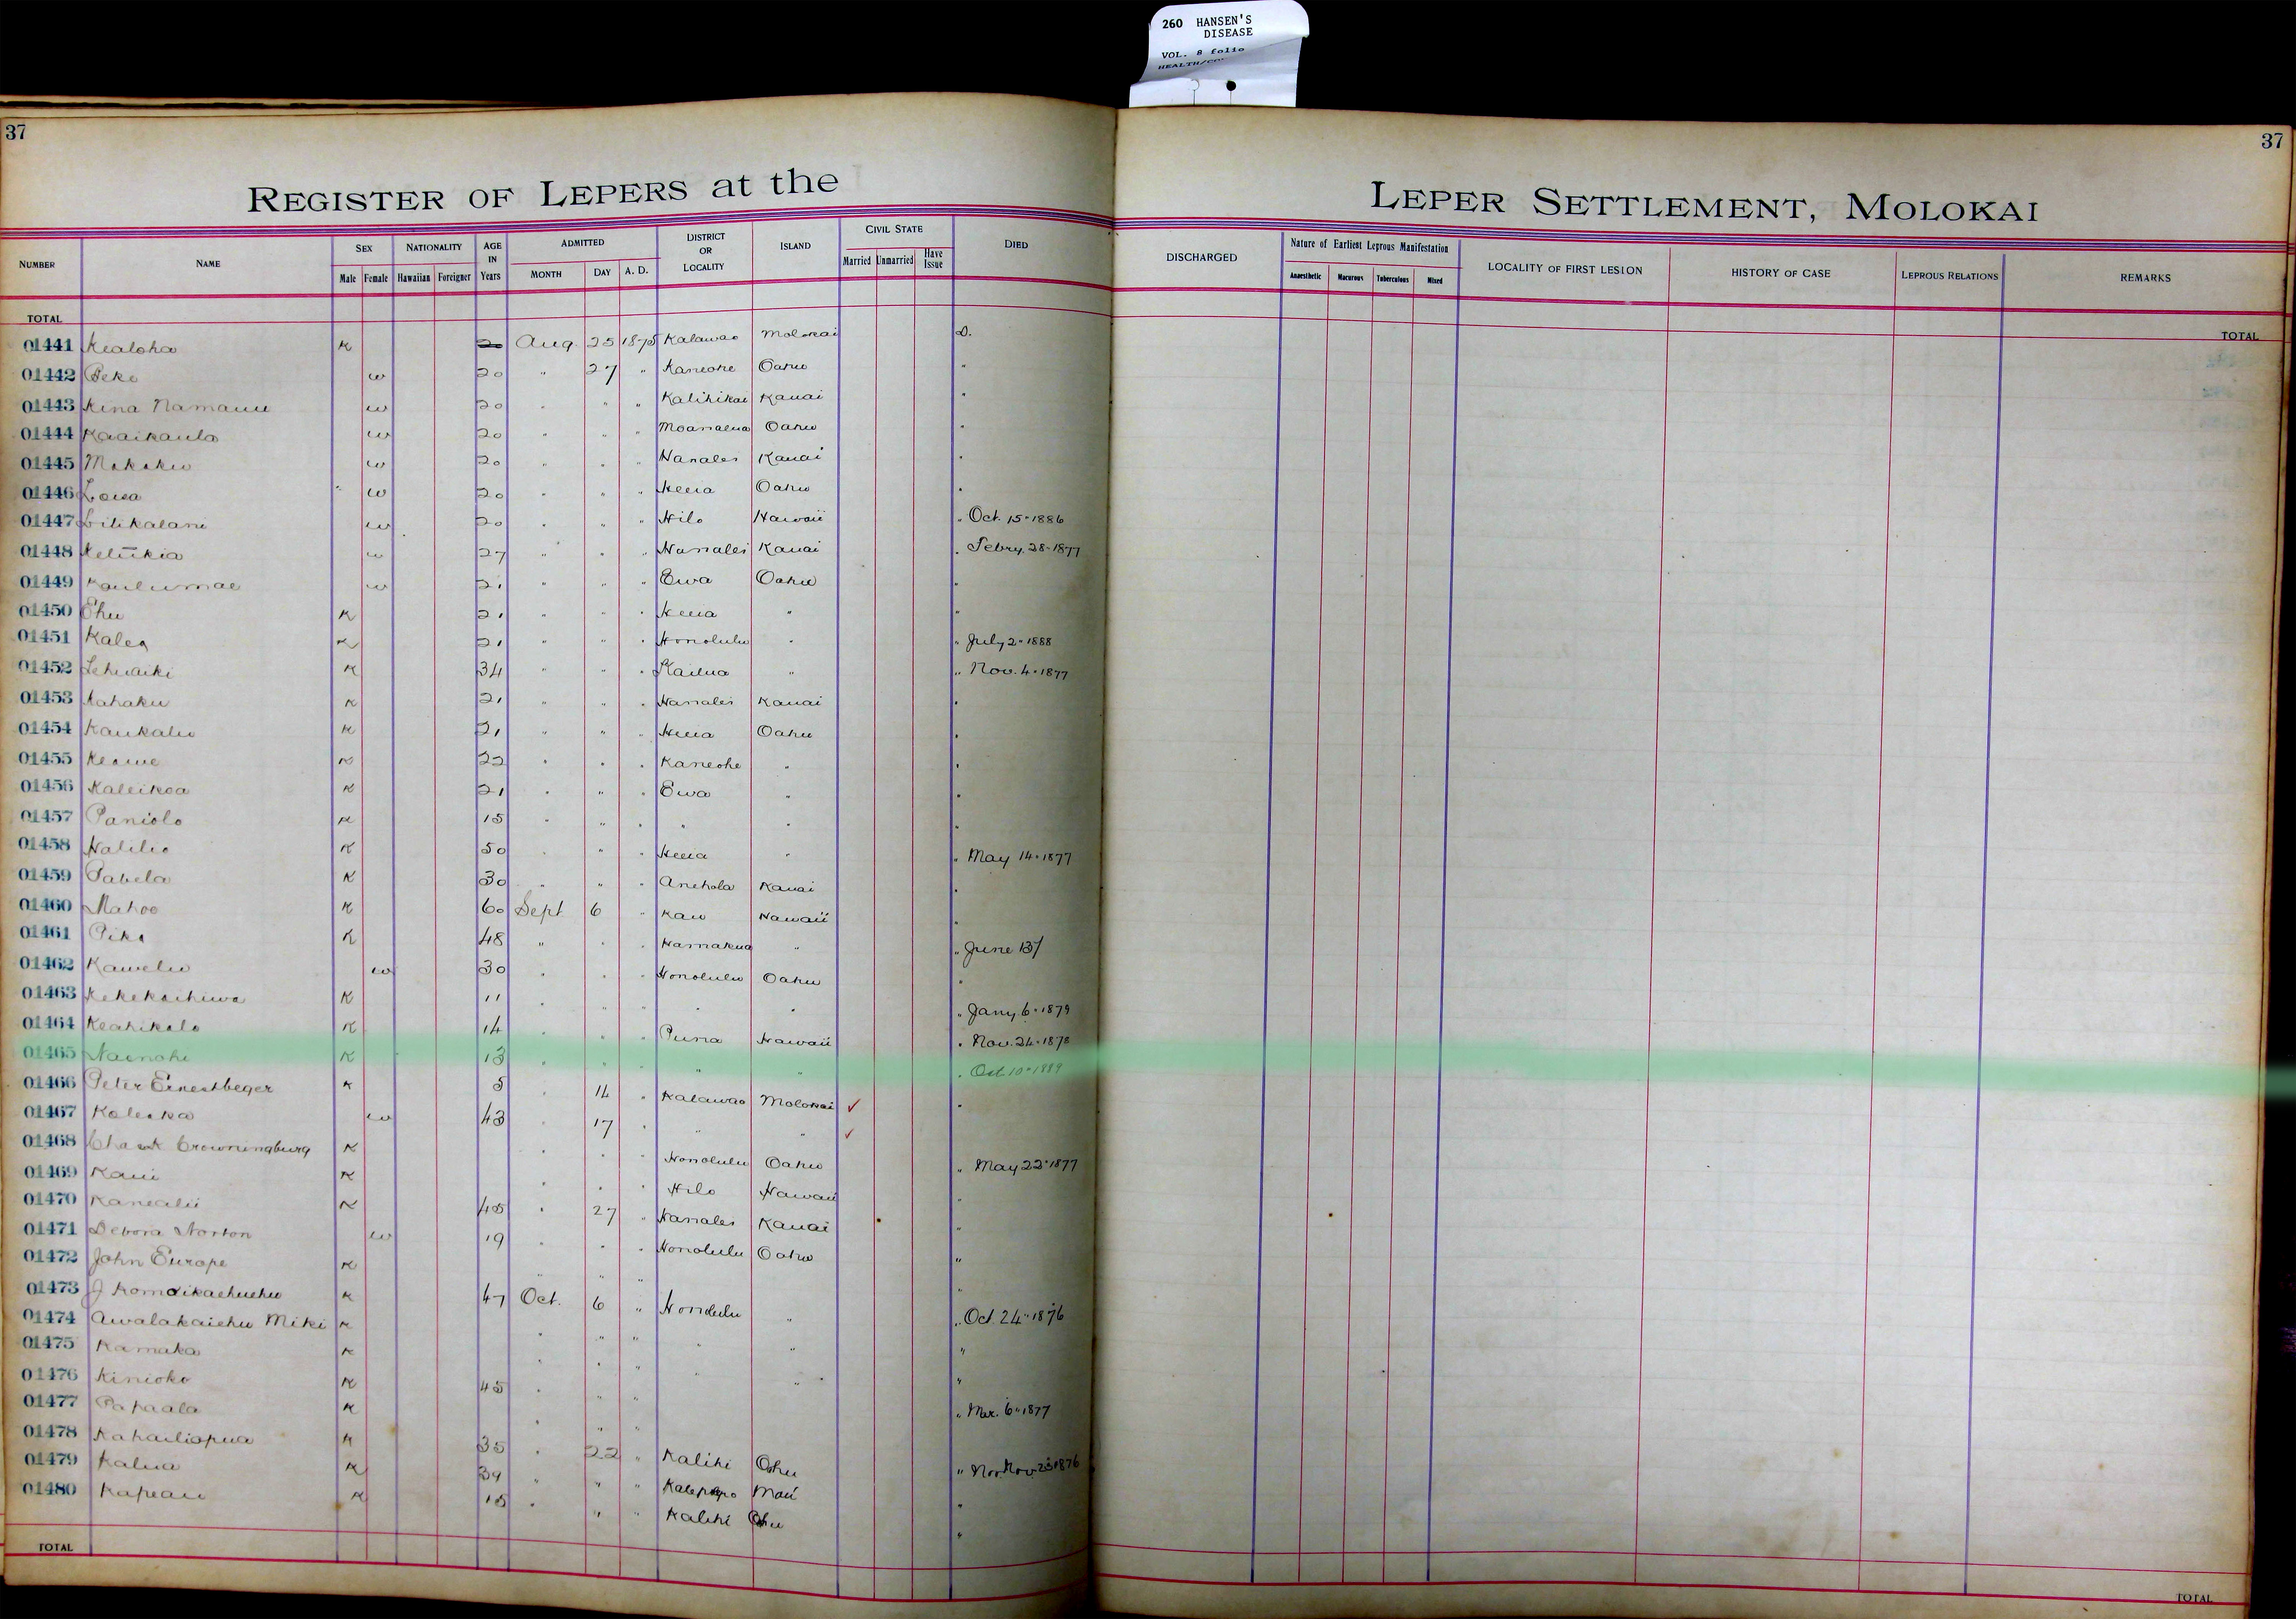 260 HANSEN'S
DISEASE
VOL. 8 folio
37
37
REGISTER OF LEPERS at the
LEPER SETTLEMENT, MOLOKAI
NUMBER NAME SEX Male Female NATIONALITY Hawaiian Foreigner AGE IN Years ADMITTED MONTH DAY A. D. DISTRICT OR LOCALITY ISLAND CIVIL STATE Married Unmarried Have Issue DIED
DISCHARGED Nature of Earliest Leprous Manifestation Anaesthetic Macurous Tuberculous Mixed LOCALITY OF FIRST LESION HISTORY OF CASE LEPROUS RELATIONS REMARKS
TOTAL
TOTAL
01441 Kealoha K 20 Aug. 25 1875 Kalawao Molokai D.
01442 Peke w 20 " 27 " Kaneohe Oahu "
01443 Kina Namauu w 20 " " " Kalihikai Kauai "
01444 Kaaikaula w 20 " " " Moanalua Oahu "
01445 w 20 " " " Hanalei Kauai "
01446 w 20 " " " Heeia Oahu "
01447 Lilikalani w 20 " " " Hilo Hawaii " Oct. 15" 1886
01448 w 27 " " " Hanalei Kauai " Febry. 28" 1877
01449 Kaulumae w 21 " " " Ewa Oahu "
01450 Ehu K 21 " " " Heeia " "
01451 Kalea K 21 " " " Honolulu " " July 2" 1888
01452 Lehuaiki K 34 " " " Kailua " " Nov. 4" 1877
01453 Kahaku K 21 " " " Hanalei Kauai "
01454 Kaukaliu K 21 " " " Heeia Oahu "
01455 Keawe K 22 " " " Kaneohe " "
01456 Kaleikoa K 21 " " " Ewa " "
01457 Paniolo K 15 " " " " " "
01458 Halilio K 50 " " " Heeia " " May 14" 1877
01459 Pabela K 30 " " " Anehola Kauai "
01460 Mahoe K 60 Sept 6 " Kau Hawaii "
01461 Pika K 48 " " " Hamakua " " June 13/
01462 Kawelu w 30 " " " Honolulu Oahu "
01463 Kekekachiwa K 11 " " " " " " Jany. 6" 1879
01464 Keahikolo K 14 " " " Puna Hawaii " Nov. 24" 1878
01465 Naenohi K 13 " " " " " " Oct. 10" 1889
01466 Peter Ernestbeger K 5 " 14 " Kalawao Molokai ✓ "
01467 Kaleika w 43 " 17 " " " ✓
01468 Crowningburg K " " " Honolulu Oahu " May 22" 1877
01469 Kaui K " " " Hilo Hawaii "
01470 Kanealii K 45 " 27 " Hanalei Kauai "
01471 Debora Norton w 19 " " " Honolulu Oahu "
01472 John Europe K " " " "
01473 J K 47 Oct. 6 " Honolulu " " Oct. 24" 1876
01474 Awalakaiehu Miki K " " " " " "
01475 Kamaka K " " " " " "
01476 Kinioko K 45 " " " " Mar. 6" 1877
01477 Papaala K " " "
01478 Kahailiopua K 35 " 22 " Kalihi Oahu " Nov. 23" 1876
01479 Kalua K 39 " " " Kalepolepo Maui "
01480 Kapeau K 15 " " " Kalihi Oahu "
TOTAL
TOTAL